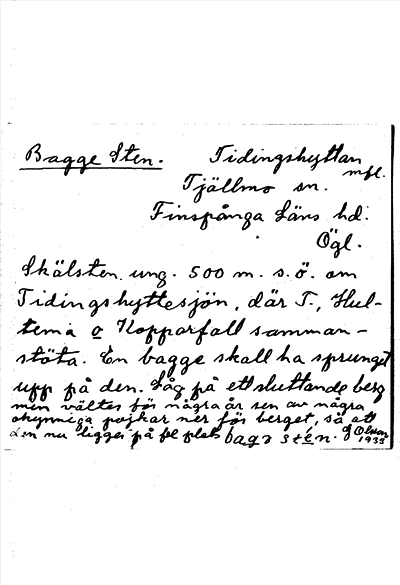 Bagge Sten. Tidingshyttan
mfl.
Tjällmo sn.
Finspånga Läns hd.
Ögl.
Skälsten. ung. 500 m. s.ö. om
Tidingshyttesjön, där T., Hul-
tema o Kopparfall samman-
stöta. En bagge skall ha sprunget
upp på den. Låg på ett sluttande berg
men vältes för några år sen av några
okynniga pojkar ner för berget, så att
den nu ligger på fel plats bagastén. G Olson
1933